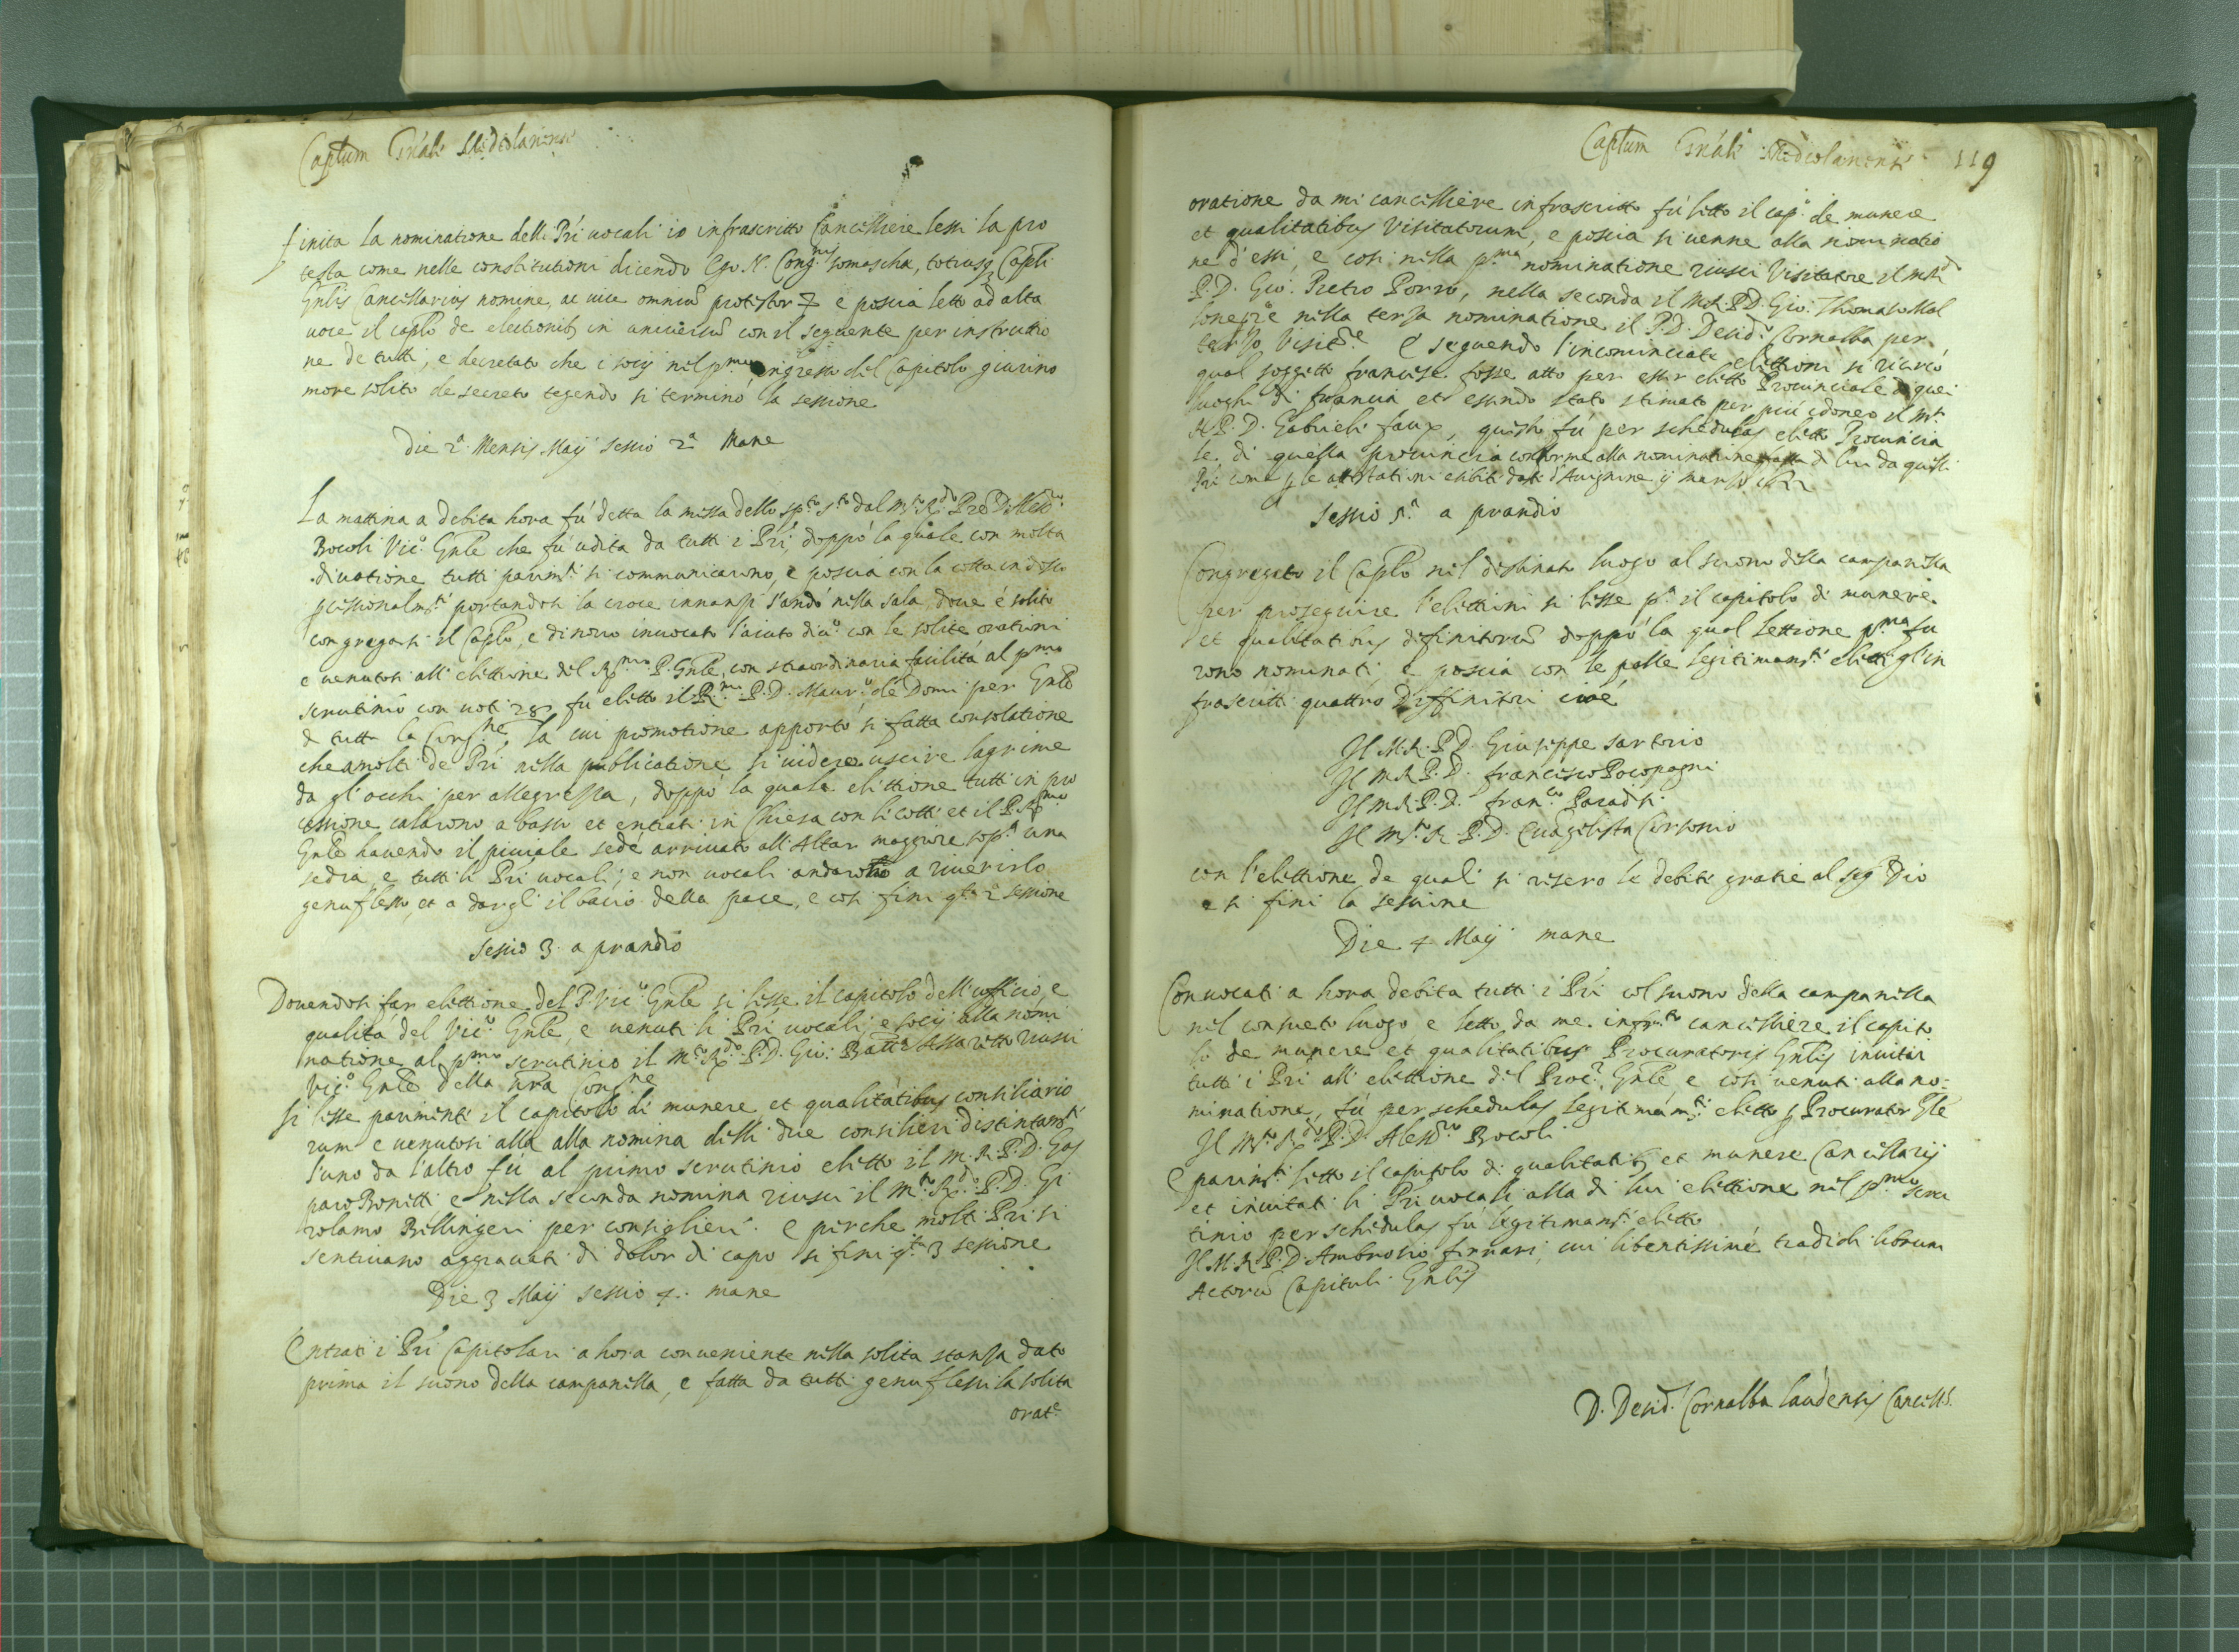 Captum Gńale Mediolanense
finita la nominatione delli Prĩ uocali io infrascritto Cancelliere lessi la pro
testa come nelle constitutioni dicendo Ego N. Cong.nis somascha, totiusq Capli
Gnlis Cancellarius nomine, ac uice omniũ protestor & e poscia letto ad alta
uoce il caplo de electionib in uniuersũ con il seguente per instrutio
ne de tutti, e decretato che i socij nel p.mo ingresso del Capitolo giurino
more solito de secreto tegendo si terminò la sessione
Die 2.a Mensis Maij sessio 2.a Mane
La mattina a debita hora fú detta la missa dello sp.to s.to dal M.to R.do Pre D. Aless.ro
Bocoli Vic.o Gnle che fu udita da tutti i Prĩ, doppò la quale con molta
diuotione tutti parim.ti si communicarono, e poscia con la cotta indosso
pcessionalm.ti portandosi la croce innanzi s'andò nella sala, doue è solito
congregarsi il Caplo, e di nouo inuocato l'aiuto diu.o con le solite orationi
e uenutosi all' elettione del R.mo P. Gnle, con straordinaria facilità al p.mo
scrutinio con uoti 28 fu eletto il R.mo P. D. Maur.o de Domi per Gnle
di tutta la Cong.ne, la cui promotione apportò si fatta consolatione
che a molti de Prĩ nella publicatione si uidero uscire lagrime
da gl' occhi per allegrezza, doppò la quale elettione tutti in pro
cessione calarono a basso et entrati in Chiesa con li cotti et il P. R.mo
Gnle hauendo il piuiale sedé arriuato all' Altar maggiore sop.a una
sedia, e tutti li Prĩ uocali, e non uocali andarono a riuerirlo
genuflesso, et a dargli il bacio della pace, e cosi finì q.ta 2.a sessione
Sessio 3. a prandio
Douendosi far elettione del P. Vic.o Gnle si lesse il capitolo dell'ufficio, e
qualità del Vic.o Gnle, e uenuti li Prĩ uocali, e socij alla nomi
natione al p.mo scrutinio il M.to R.do P. D. Gio: Batta Assaretto riusci
Vic.o Gnle della ñra Cong.ne
Si lesse parimenti il capitolo di munere, et qualitatibus consiliario
rum e uenutosi alla alla nomina delli due consilieri distintam.ti
l'uno da l'altro fù al primo scrutinio eletto il M. R. P. D. Gas
paro Bonetti e nella secunda nomina riuscì il M.to R.do P. D. Gi
rolamo Bellingeri per consiglieri. e perche molti Prĩ si
sentiuano aggrauati di dolor di capo si finì q.ta 3 sessione
Die 3 Maij sessio 4. mane
Entrati i Prĩ Capitolari a hora conueniente nella solita stanza dato
prima il suono della campanella, e fatta da tutti genuflessi la solita
orat.e
Captum Gńale Mediolanense 119
oratione da mi cancelliere infrascritto fú letto il cap.o de munere
et qualitatibus Visitatorum, e poscia si uenne alla nominatio
ne d'essi, e cosi nella p.ma nominatione riusci Visitatore il M.R.do
P. D. Gio: Pietro Porro, nella seconda il M.R. P. D. Gio: Thomaso Mal
lone, e nella terza nominatione il P. D. Desid.o Cornalba per
terzo Visit.re E seguendo l'incominciate elettioni si ricercò
qual soggetto francese fosse atto per esser eletto Prouinciale di quei
luoghi di francia et essendo stato stimato per più idoneo il M.to
R. P. D. Gabrieli faux, questo fú per schedulas eletto Prouincia
le di quella prouincia conforme alla nominatione fatta di lui da quelli
Prĩ come p le attestationi esibiti dati d'Auignone
Sessio 5.a a prandio
Congregato il Caplo nel destinato luogo al suono della campanella
per proseguire l'elettioni si lesse p.a il capitolo di munere
et qualitatibus difinitorũ doppò la qual lettione p.ma fu
rono nominati, e poscia con le palle legitimam.ti eletti gl' in
frascritti quattro Diffinitori cioè
Il M. R. P. D. Giuseppe Sartorio
Il M R P. D. Francesco Bocopagni
Il M. R. P. D. Fran.co Paradisi
Il M.to R P. D. Euangelista Corsonio
con l'elettione de quali si resero le debiti gratie al sig Dio
e si finì la sessione
Die 4 Maij mane
Conuocati a hora debita tutti i Prĩ col suono della campanella
nel consueto luogo e letto da me infr.tto cancelliere il capito
lo de munere et qualitatibus Procuratoris Gnlis inuitai
tutti i Prĩ all' elettione del Proc.r Gnle, e cosi uenuti alla no=
minatione, fù per schedulas legitimam.ti eletto p Procurator Gle
Il M.to R.do P. D. Aless.ro Bocoli
E parim.ti letto il capitolo di qualitatib et munere Cancellarij
et inuitati li Prĩ uocali alla di lui elettione nel p.mo scru
tinio per schedulas fù legitimam.ti eletto
Il M. R. P. D. Ambrosio ferrari, cui libentissime tradidi librum
Actorũ Capituli Gnlis
D. Desid.s Cornalba laudensis Cancell.s